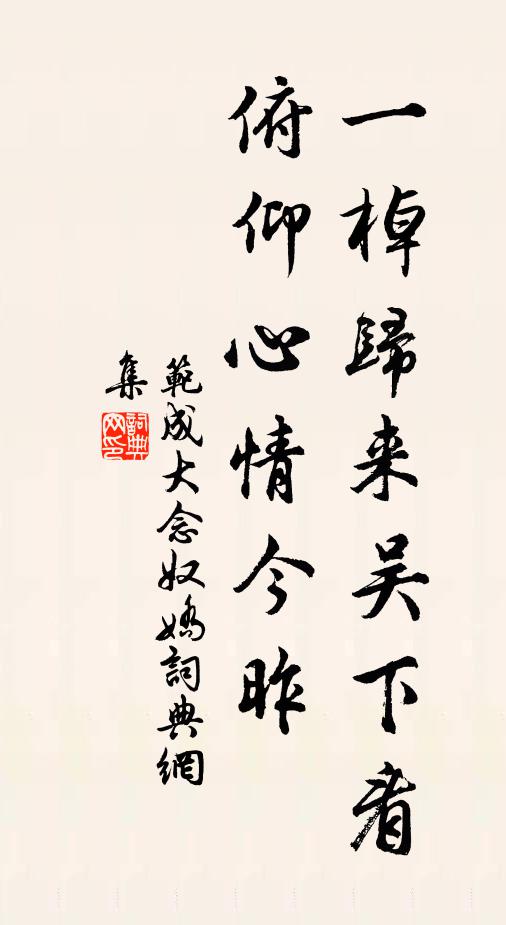 一棹歸来吴下看
俯仰心情今昨
範成大念奴嬌詞典網
集
詞典
网印